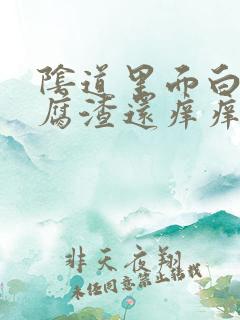 陰道里面白
腐渣還痒痒
非天夜翔
未经同意禁止转载